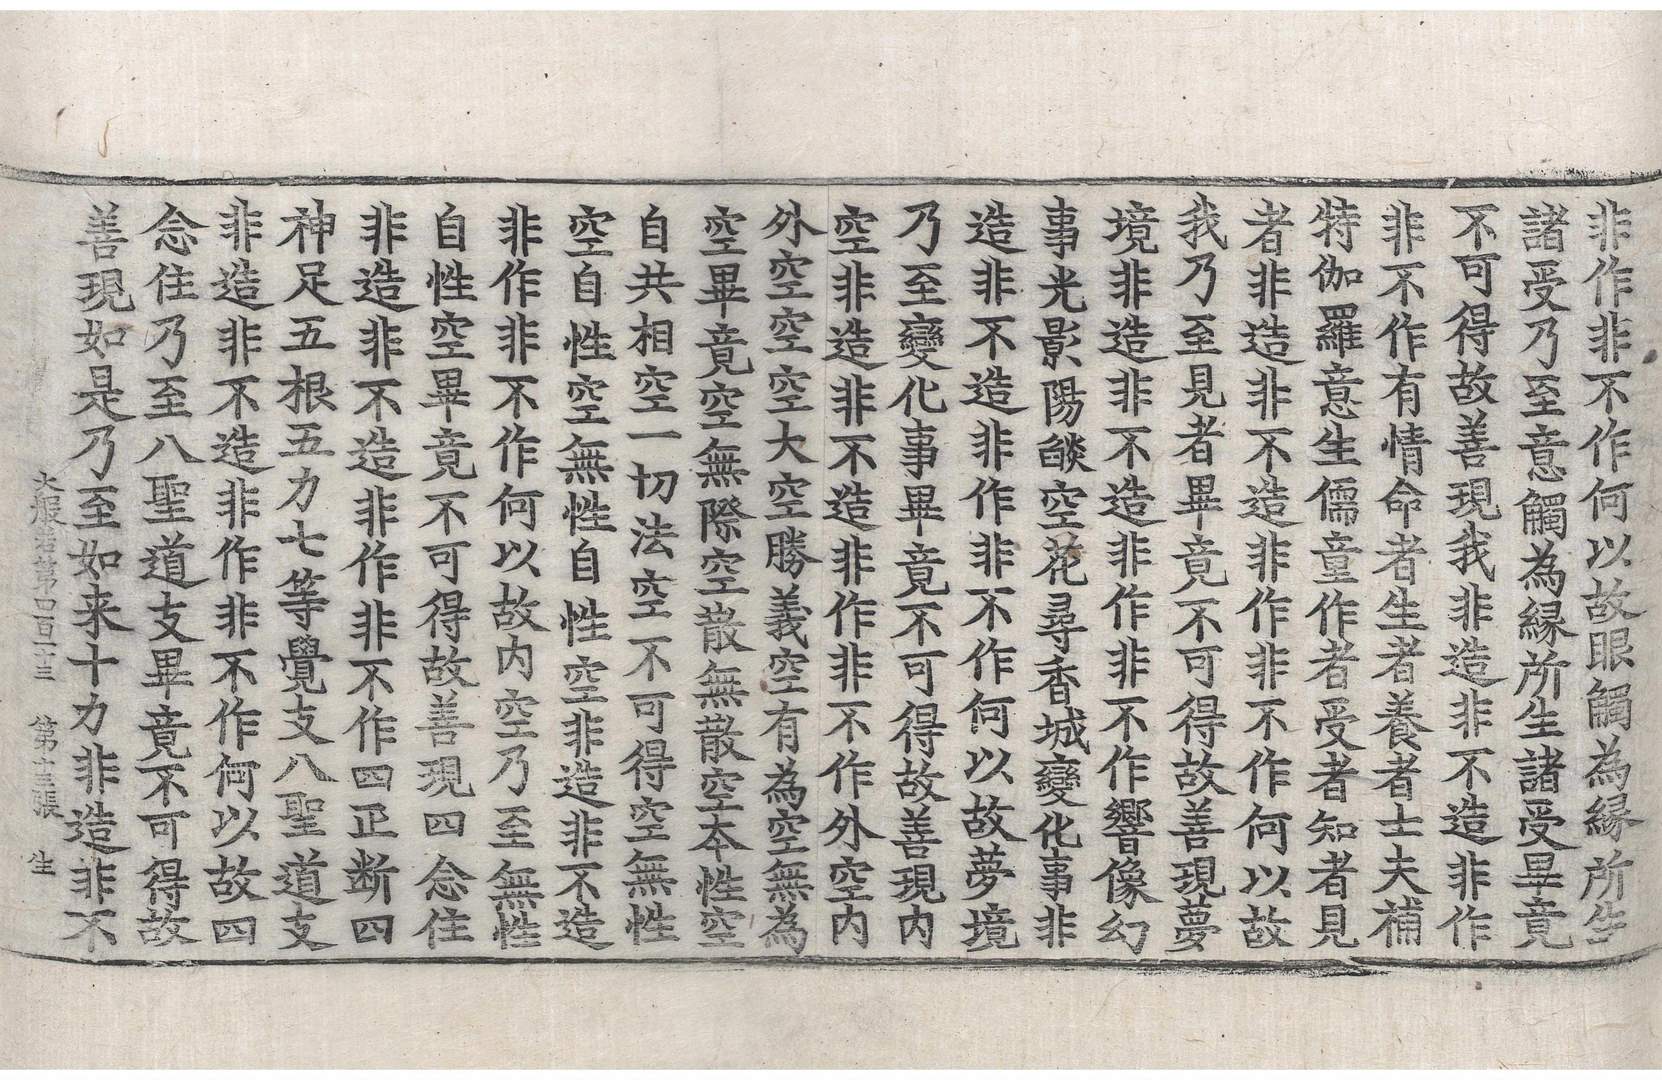 非作非不作何以故眼觸為緣所生
諸受乃至意觸為緣所生諸受畢竟
不可得故善現我非造非不造非作
非不作有情命者生者養者士夫補
特伽羅意生儒童作者受者知者見
者非造非不造非作非不作何以故
我乃至見者畢竟不可得故善現夢
境非造非不造非作非不作響像幻
事光影陽燄空花尋香城變化事非
造非不造非作非不作何以故夢境
乃至變化事畢竟不可得故善現内
空非造非不造非作非不作外空内
外空空空大空勝義空有為空無為
空畢竟空無際空散無散空本性空
自共相空一切法空不可得空無性
空自性空無性自性空非造非不造
非作非不作何以故内空乃至無性
自性空畢竟不可得故善現四念住
非造非不造非作非不作四正断四
神足五根五力七等覺支八聖道支
非造非不造非作非不作何以故四
念住乃至八聖道支畢竟不可得故
善現如是乃至如来十力非造非不
大般若第四百一十三 第十三張 生